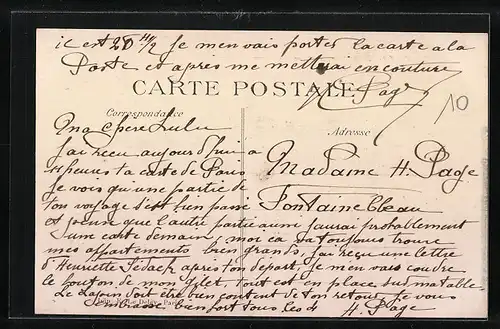 il est 2h 11/2 je men vais porter la carte a la
Poste et après me mettrai en couture
CARTE POSTALE
H Page
10
Correspondance
Adresse
Ma chere Lulu
Jai reçu aujourd'hui a
heures ta carte de Paris
Je vois qu'une partie de
ton voyage s'est bien passé
et pense que l'autre partie aussi jaurai probablement
une carte demain, moi ca va toujours trouve
mes appartements bien grands, jai reçu une lettre
d'Henriette après ton depart, je men vais coudre
le bouton de mon gilet, tout est en place sur ma table
Le Lapin doit être bien content de ton retour, je vous
embrasse bien fort tous les 4 H. Page
Madame H. Page
Fontainebleau